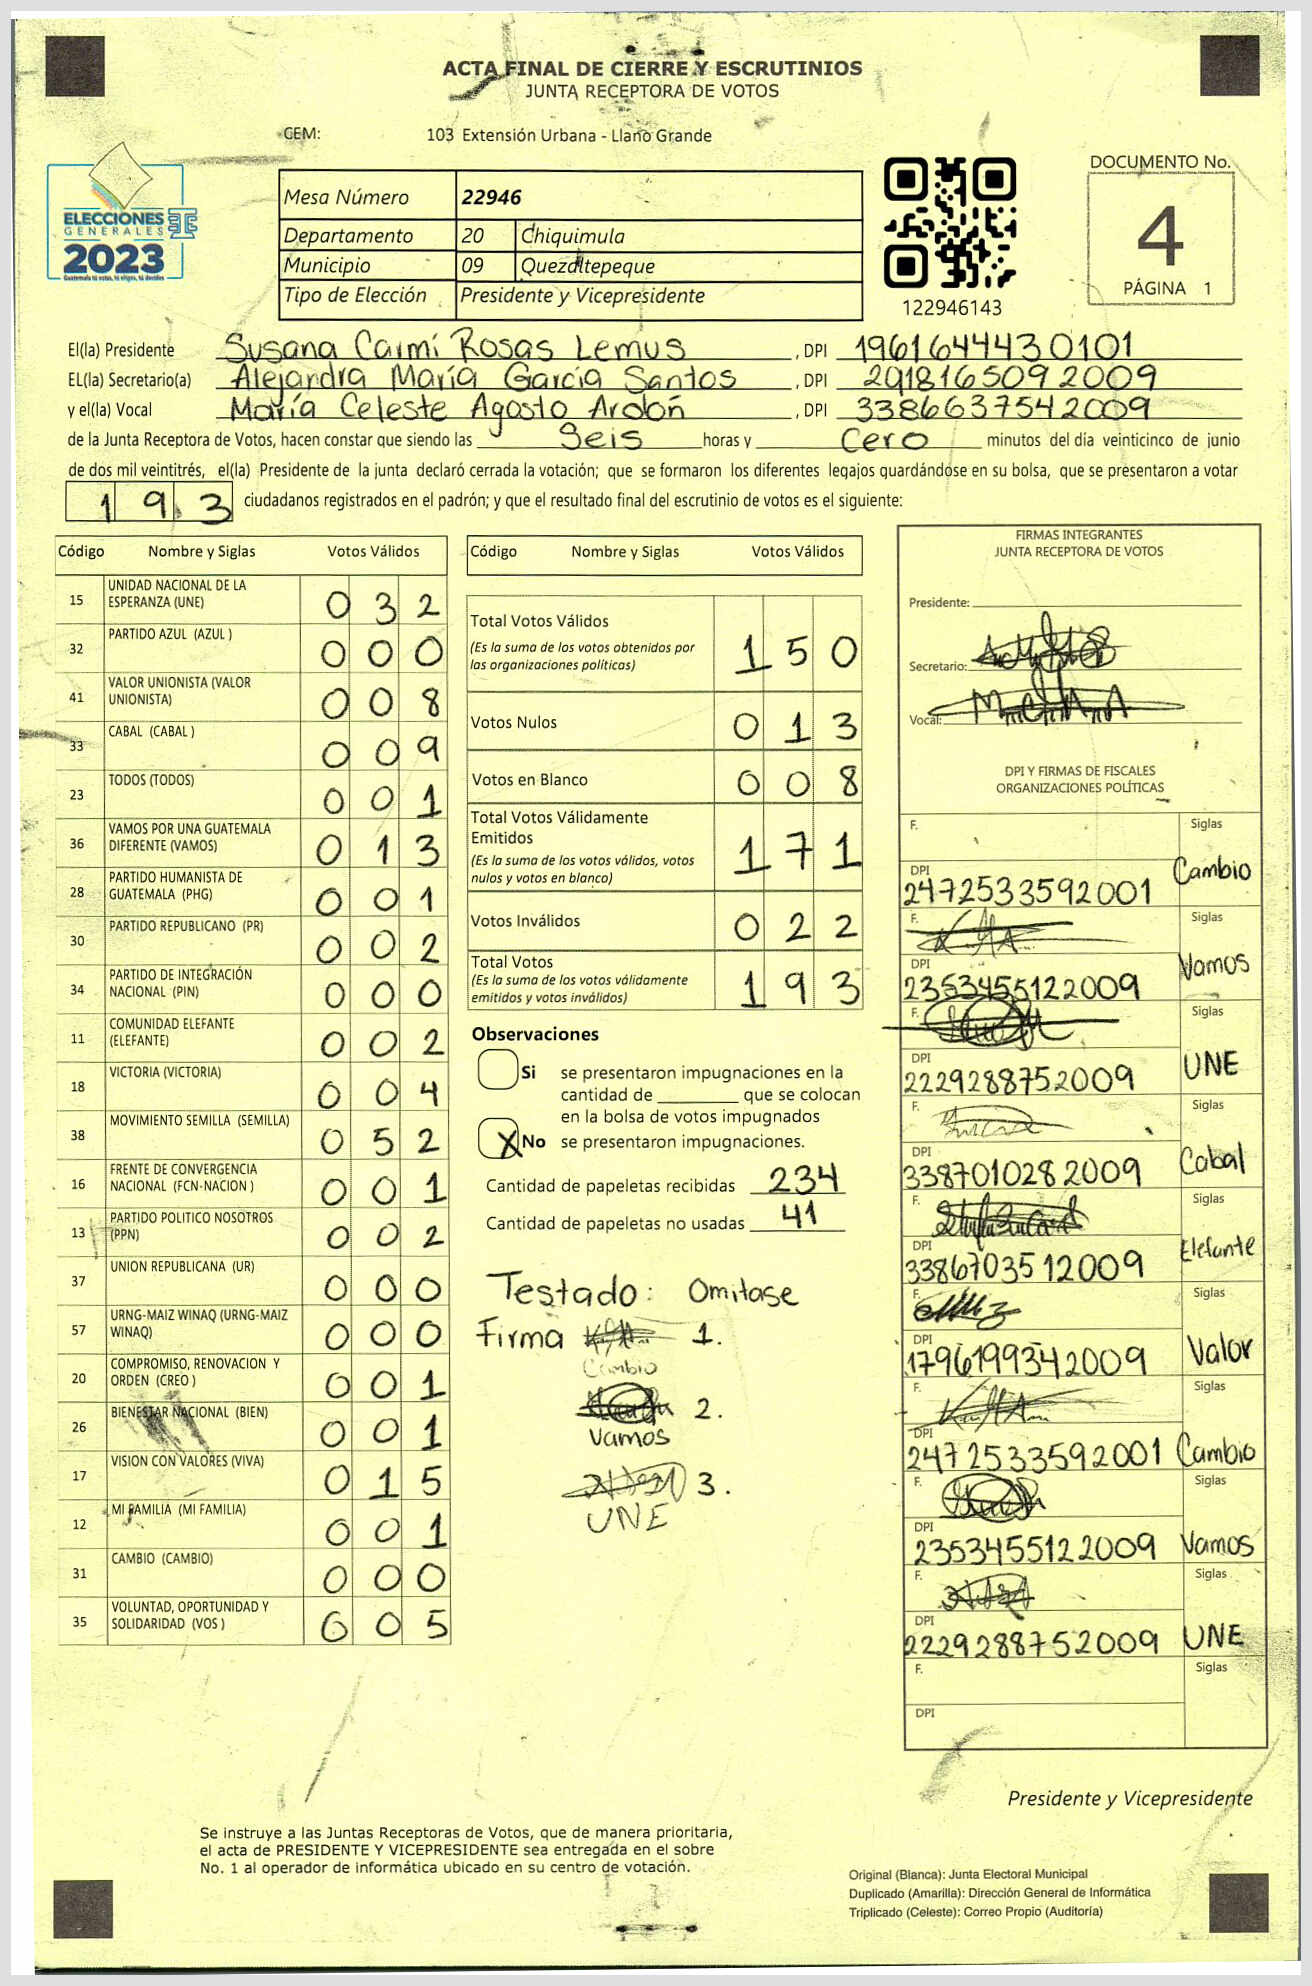 ACTA FINAL DE CIERRE Y ESCRUTINIOS
JUNTA RECEPTORA DE VOTOS
CEM: 103 Extensión Urbana - Llano Grande
ELECCIONES
GENERALES
2023
Guatemala tú votas, tú eliges, tú decides
Mesa Número 22946
Departamento 20 Chiquimula
Municipio 09 Quezaltepeque
Tipo de Elección Presidente y Vicepresidente
122946143
DOCUMENTO No.
4
PÁGINA 1
El(la) Presidente Susana Carmí Rosas Lemus , DPI 1961644430101
EL(la) Secretario(a) Alejandra María García Santos , DPI 2918165092009
y el(la) Vocal María Celeste Agosto Ardón , DPI 3386637542009
de la Junta Receptora de Votos, hacen constar que siendo las Seis horas y Cero minutos del día veinticinco de junio
de dos mil veintitrés, el(la) Presidente de la junta declaró cerrada la votación; que se formaron los diferentes legajos guardándose en su bolsa, que se presentaron a votar
193 ciudadanos registrados en el padrón; y que el resultado final del escrutinio de votos es el siguiente:
Código Nombre y Siglas Votos Válidos
15 UNIDAD NACIONAL DE LA ESPERANZA (UNE) 0 3 2
32 PARTIDO AZUL (AZUL ) 0 0 0
41 VALOR UNIONISTA (VALOR UNIONISTA) 0 0 8
33 CABAL (CABAL ) 0 0 9
23 TODOS (TODOS) 0 0 1
36 VAMOS POR UNA GUATEMALA DIFERENTE (VAMOS) 0 1 3
28 PARTIDO HUMANISTA DE GUATEMALA (PHG) 0 0 1
30 PARTIDO REPUBLICANO (PR) 0 0 2
34 PARTIDO DE INTEGRACIÓN NACIONAL (PIN) 0 0 0
11 COMUNIDAD ELEFANTE (ELEFANTE) 0 0 2
18 VICTORIA (VICTORIA) 0 0 4
38 MOVIMIENTO SEMILLA (SEMILLA) 0 5 2
16 FRENTE DE CONVERGENCIA NACIONAL (FCN-NACION ) 0 0 1
13 PARTIDO POLITICO NOSOTROS (PPN) 0 0 2
37 UNION REPUBLICANA (UR) 0 0 0
57 URNG-MAIZ WINAQ (URNG-MAIZ WINAQ) 0 0 0
20 COMPROMISO, RENOVACION Y ORDEN (CREO ) 0 0 1
26 BIENESTAR NACIONAL (BIEN) 0 0 1
17 VISION CON VALORES (VIVA) 0 1 5
12 MI FAMILIA (MI FAMILIA) 0 0 1
31 CAMBIO (CAMBIO) 0 0 0
35 VOLUNTAD, OPORTUNIDAD Y SOLIDARIDAD (VOS ) 0 0 5
Código Nombre y Siglas Votos Válidos
Total Votos Válidos 1 5 0
(Es la suma de los votos obtenidos por
las organizaciones políticas)
Votos Nulos 0 1 3
Votos en Blanco 0 0 8
Total Votos Válidamente
Emitidos 1 7 1
(Es la suma de los votos válidos, votos
nulos y votos en blanco)
Votos Inválidos 0 2 2
Total Votos 1 9 3
(Es la suma de los votos válidamente
emitidos y votos inválidos)
Observaciones
Si se presentaron impugnaciones en la
cantidad de ________ que se colocan
en la bolsa de votos impugnados
X No se presentaron impugnaciones.
Cantidad de papeletas recibidas 234
Cantidad de papeletas no usadas 41
Testado: Omitase
Firma 1.
Cambio
2.
Vamos
3.
UNE
FIRMAS INTEGRANTES
JUNTA RECEPTORA DE VOTOS
Presidente:
Secretario:
Vocal:
DPI Y FIRMAS DE FISCALES
ORGANIZACIONES POLÍTICAS
F. Siglas
DPI 2472533592001 Cambio
F. Siglas
DPI 2353455122009 Vamos
F. Siglas
DPI 2229288752009 UNE
F. Siglas
DPI 3387010282009 Cabal
F. Siglas
DPI 3386703512009 Elefante
F. Siglas
DPI 1796199342009 Valor
F. Siglas
DPI 2472533592001 Cambio
F. Siglas
DPI 2353455122009 Vamos
F. Siglas
DPI 2229288752009 UNE
F. Siglas
DPI
Presidente y Vicepresidente
Se instruye a las Juntas Receptoras de Votos, que de manera prioritaria,
el acta de PRESIDENTE Y VICEPRESIDENTE sea entregada en el sobre
No. 1 al operador de informática ubicado en su centro de votación.
Original (Blanca): Junta Electoral Municipal
Duplicado (Amarilla): Dirección General de Informática
Triplicado (Celeste): Correo Propio (Auditoría)